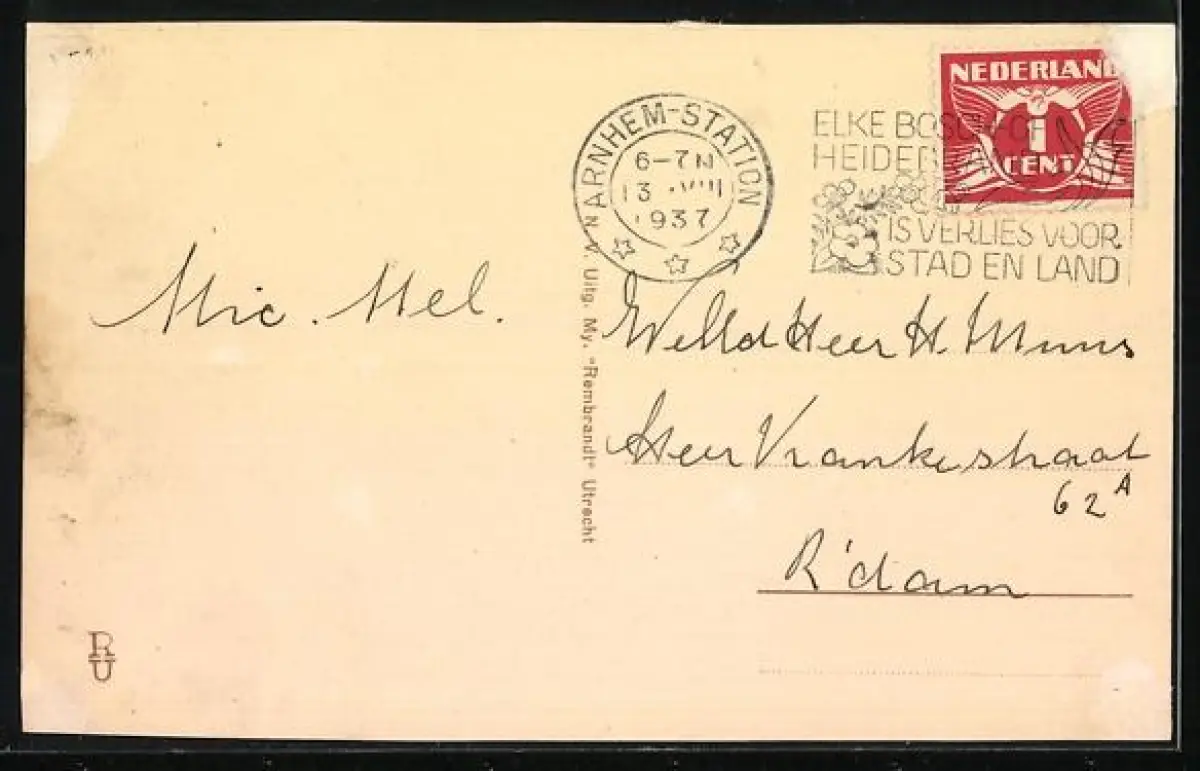 NEDERLAND
1
CENT
ARNHEM-STATION
6-7N
13 VIII
1937
ELKE BOSCH- OF
HEIDEBRAND
IS VERLIES VOOR
STAD EN LAND
Mic. Mel.
N.V. Uitg. My. "Rembrandt" Utrecht
WelEd Heer H. Muns
Heer Vrankestraat
62A
R'dam
RU